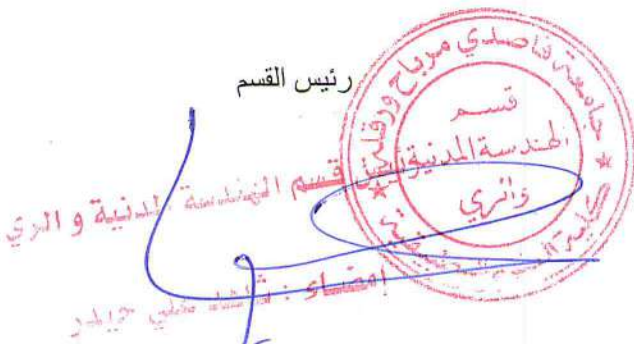 رئيس القسم
جامعة قاصدي مرباح ورقلة
قسم
الهندسة المدنية
والري
رئيس قسم الهندسة المدنية و الري
إمضاء :